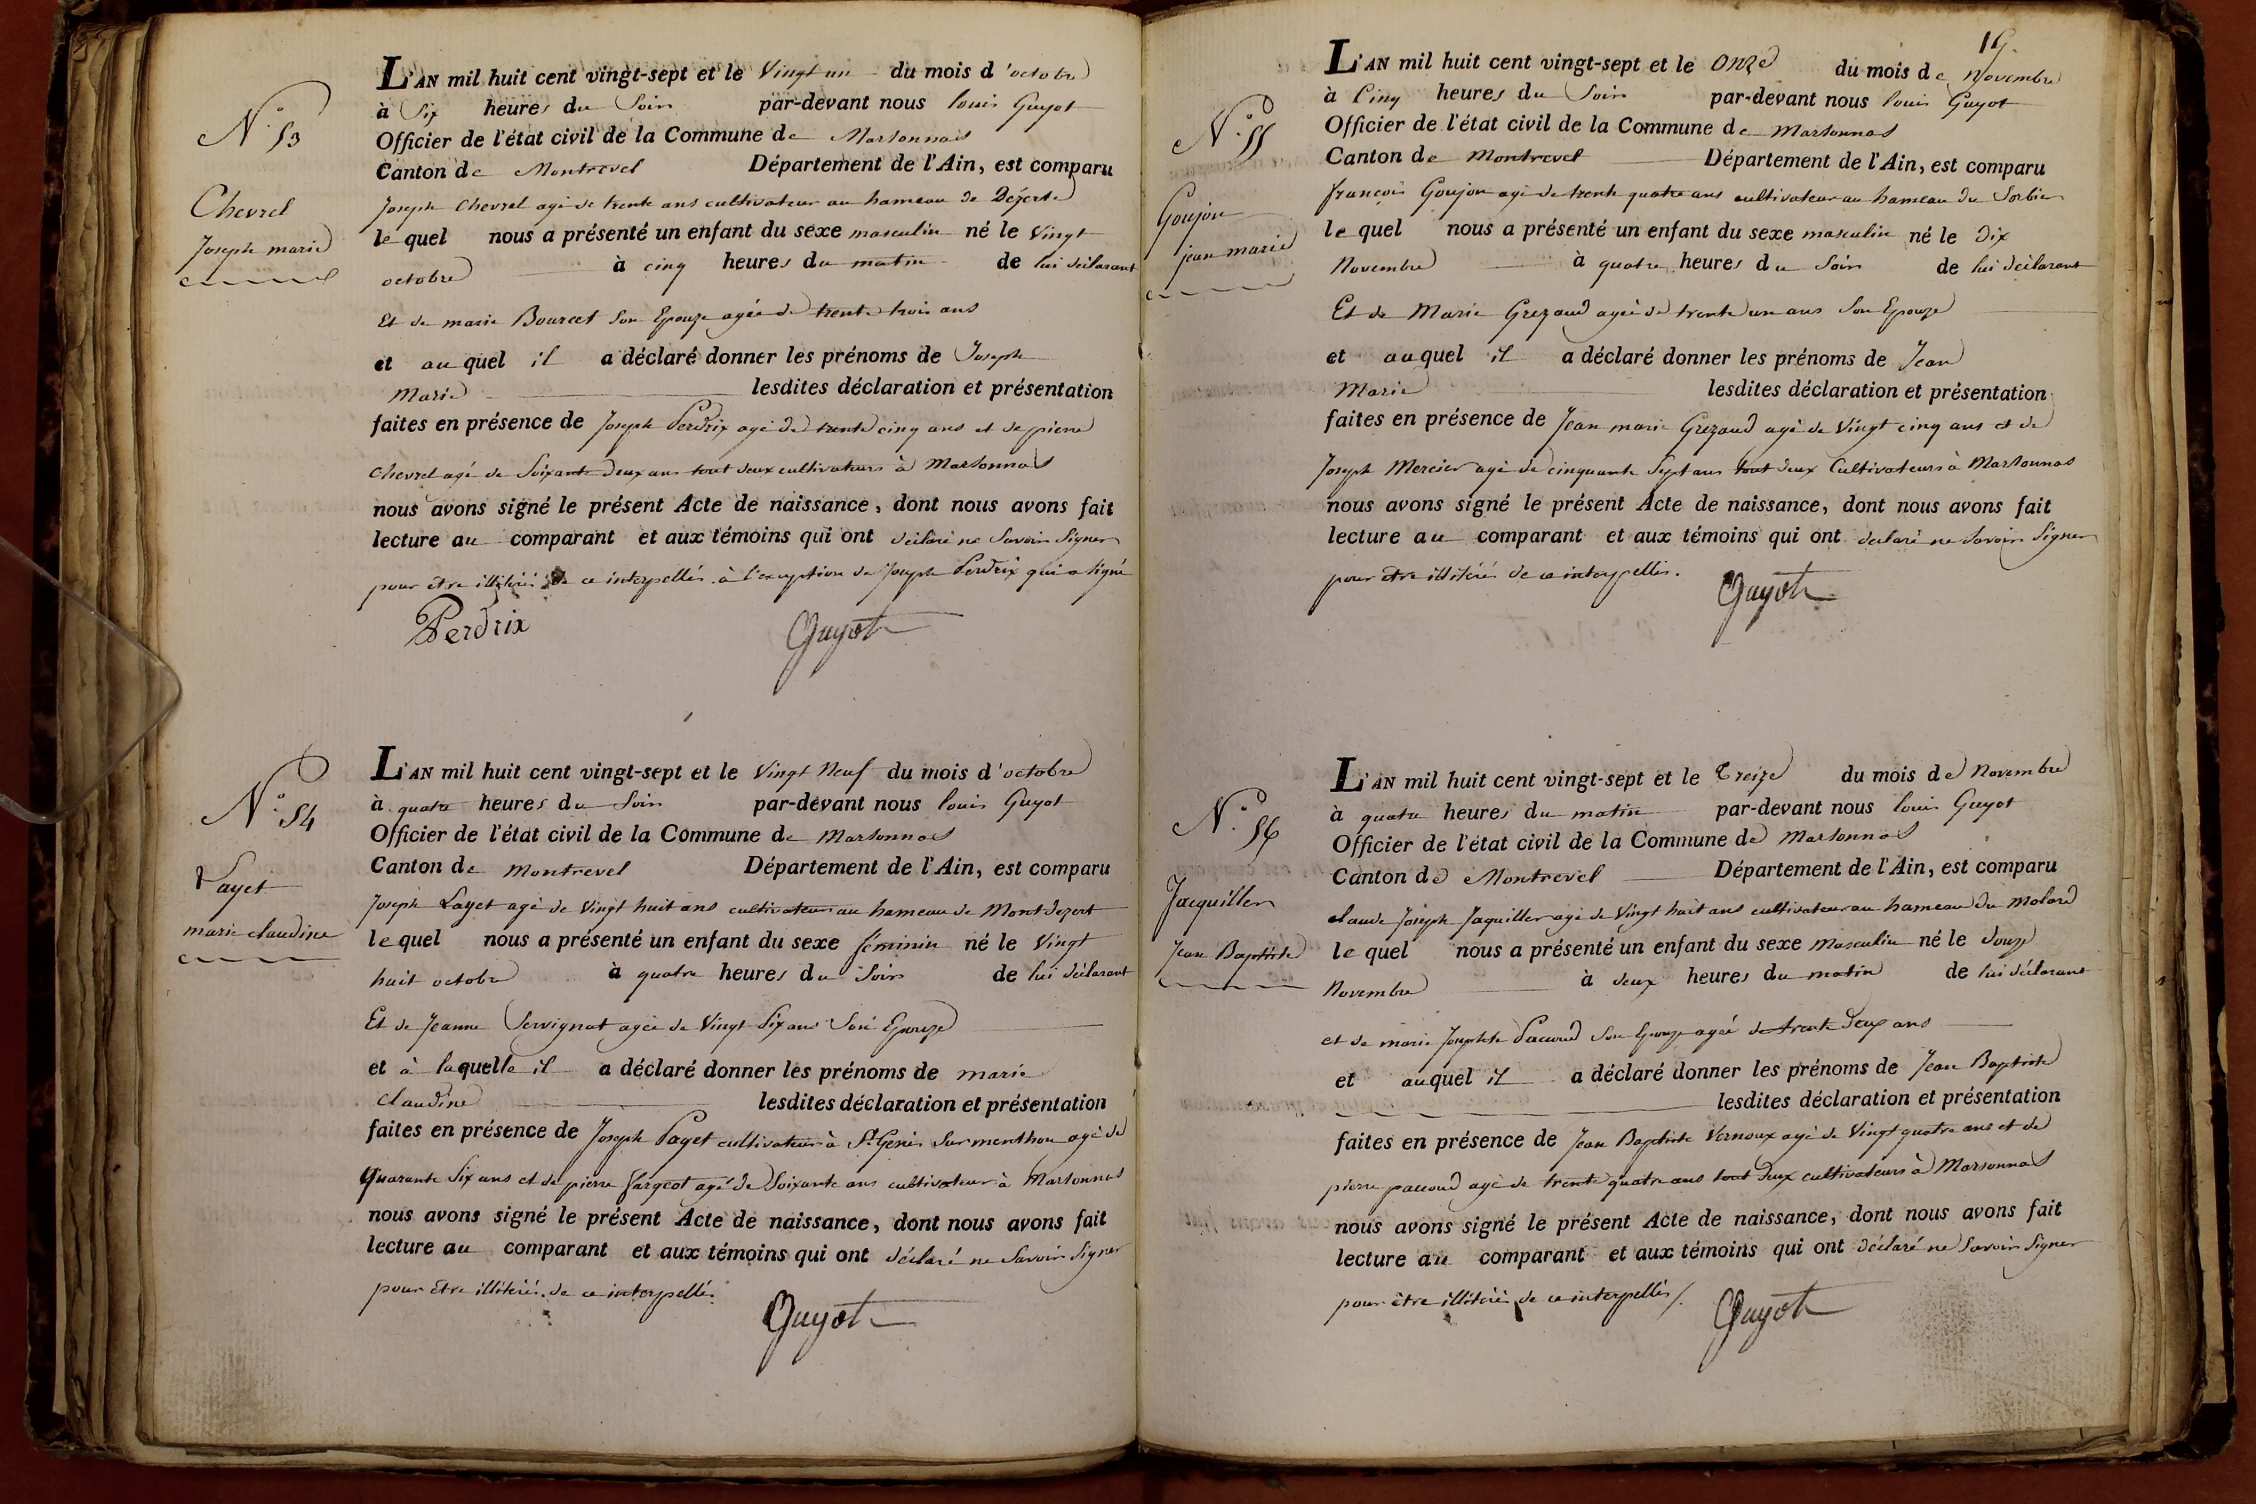 N.° 53
Chevrel
Joseph marie
L'AN mil huit cent vingt-sept et le Vingt un du mois d'octobre
à Six heures du Soir par-devant nous louis Guyot
Officier de l'état civil de la Commune de Marsonnas
Canton de Montrevel Département de l'Ain, est comparu
Joseph Chevrel agé de trente ans cultivateur au hameau de Dézerte
le quel nous a présenté un enfant du sexe masculin né le Vingt
octobre à cinq heures du matin de lui déclarant
Et de marie Bourcet Son Epouze agée de trente trois ans
et au quel il a déclaré donner les prénoms de Joseph
Marie lesdites déclaration et présentation
faites en présence de Joseph Perdrix agé de trente cinq ans et de pierre
Chevrel agé de Soixante deux ans tout deux cultivateurs à Marsonnas
nous avons signé le présent Acte de naissance, dont nous avons fait
lecture au comparant et aux témoins qui ont déclaré ne Savoir Signer
pour être illitérés de ce interpellés à l'exception de Joseph Perdrix qui a signé
Perdrix Guyot
N.° 54
Payet
marie claudine
L'AN mil huit cent vingt-sept et le Vingt Neuf du mois d'octobre
à quatre heures du Soir par-devant nous louis Guyot
Officier de l'état civil de la Commune de Marsonnas
Canton de Montrevel Département de l'Ain, est comparu
Joseph Payet agé de Vingt huit ans cultivateur au hameau de Montdezert
le quel nous a présenté un enfant du sexe féminin né le Vingt
huit octobre à quatre heures du Soir de lui déclarant
Et de Jeanne Servignat agée de Vingt Six ans Son Epouze
et à laquelle il a déclaré donner les prénoms de marie
Claudine lesdites déclaration et présentation
faites en présence de Joseph Payet cultivateur à St Genis Sur menthon agé de
Quarante Six ans et de pierre fargeot agé de Soixante ans cultivateur à Marsonnas
nous avons signé le présent Acte de naissance, dont nous avons fait
lecture au comparant et aux témoins qui ont déclaré ne Savoir Signer
pour être illitérés de ce interpellés
Guyot
19.
N.° 55
Goujon
jean marie
L'AN mil huit cent vingt-sept et le Onze du mois de Novembre
à Cinq heures du Soir par-devant nous louis Guyot
Officier de l'état civil de la Commune de Marsonnas
Canton de Montrevel Département de l'Ain, est comparu
françois Goujon agé de trente quatre ans cultivateur au hameau du Sorbier
le quel nous a présenté un enfant du sexe masculin né le Dix
Novembre à quatre heures du Soir de lui déclarant
Et de Marie Grezaud agée de trente un ans Son Epouze
et auquel il a déclaré donner les prénoms de Jean
Marie lesdites déclaration et présentation
faites en présence de Jean marie Grezaud agé de Vingt cinq ans et de
Joseph Mercier agé de cinquante Sept ans tout deux Cultivateurs à Marsonnas
nous avons signé le présent Acte de naissance, dont nous avons fait
lecture au comparant et aux témoins qui ont déclaré ne Savoir Signer
pour être illitérés de ce interpellés.
Guyot
N.° 56
Jacquiller
Jean Baptiste
L'AN mil huit cent vingt-sept et le Treize du mois de Novembre
à quatre heures du matin par-devant nous louis Guyot
Officier de l'état civil de la Commune de Marsonnas
Canton de Montrevel Département de l'Ain, est comparu
claude Joseph Jaquiller agé de Vingt huit ans cultivateur au hameau du Molard
le quel nous a présenté un enfant du sexe masculin né le douze
Novembre à deux heures du matin de lui déclarant
et de marie Josephte Pacoud Son Epouze agée de trente deux ans
et auquel il a déclaré donner les prénoms de Jean Baptiste
lesdites déclaration et présentation
faites en présence de Jean Baptiste Vernoux agé de Vingt quatre ans et de
pierre pacoud agé de trente quatre ans tout deux cultivateurs à Marsonnas
nous avons signé le présent Acte de naissance, dont nous avons fait
lecture au comparant et aux témoins qui ont déclaré ne Savoir Signer
pour être illitérés de ce interpellés /.
Guyot